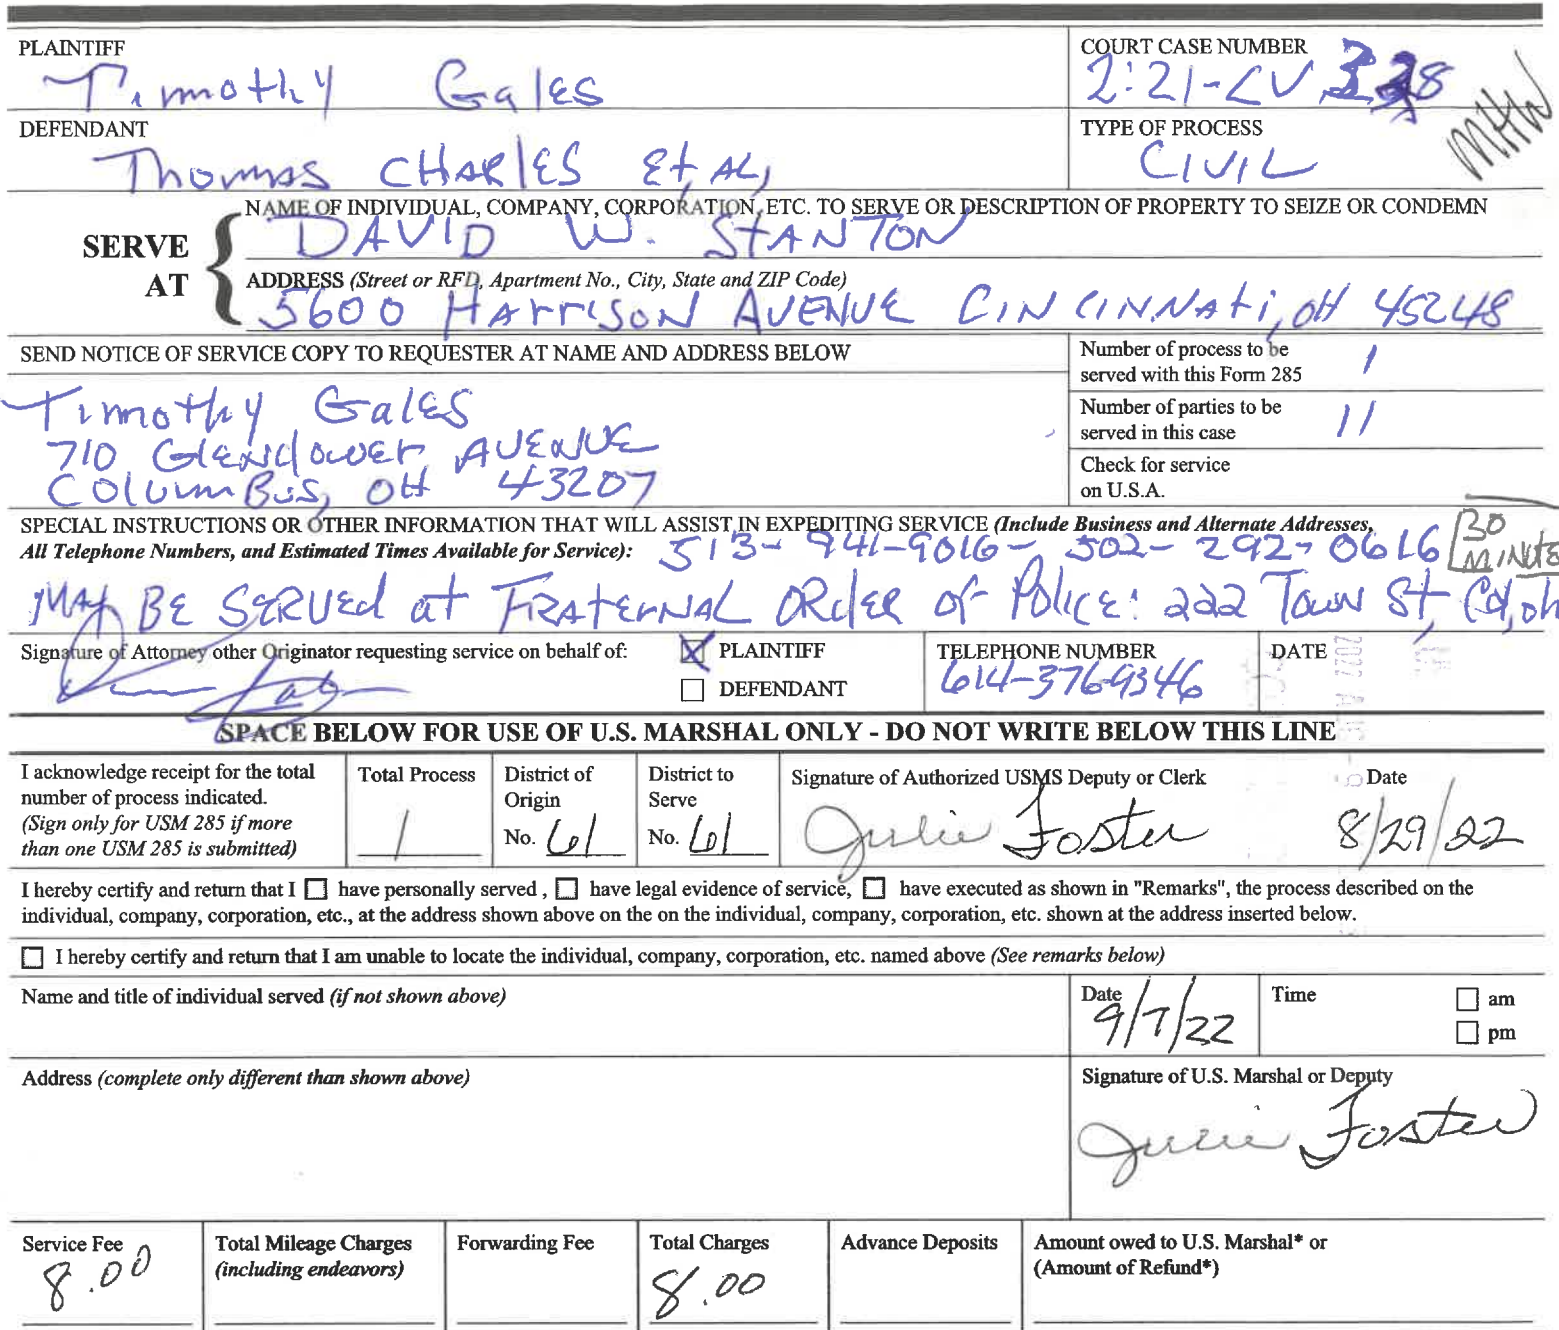 PLAINTIFF
Timothy Gales
COURT CASE NUMBER
2:21-CV
MHW
DEFENDANT
Thomas CHARLES Et, AL,
TYPE OF PROCESS
CIVIL
SERVE AT
NAME OF INDIVIDUAL, COMPANY, CORPORATION, ETC. TO SERVE OR DESCRIPTION OF PROPERTY TO SEIZE OR CONDEMN
DAVID W. STANTON
ADDRESS (Street or RFD, Apartment No., City, State and ZIP Code)
5600 HArrISON AVENUE CINCINNAti, OH 45248
SEND NOTICE OF SERVICE COPY TO REQUESTER AT NAME AND ADDRESS BELOW
Timothy Gales
710 Glendower AVENUE
COlumBus, OH 43207
Number of process to be
served with this Form 285
1
Number of parties to be
served in this case
11
Check for service
on U.S.A.
SPECIAL INSTRUCTIONS OR OTHER INFORMATION THAT WILL ASSIST IN EXPEDITING SERVICE (Include Business and Alternate Addresses,
All Telephone Numbers, and Estimated Times Available for Service):
513-941-9016- 502-292-0616 30 MINUTE
MAY BE SERVEd at FRATERNAL ORdER OF POLICE: 222 Town St, Col, oh
Signature of Attorney other Originator requesting service on behalf of:
PLAINTIFF
DEFENDANT
TELEPHONE NUMBER
614-376-9346
DATE
SPACE BELOW FOR USE OF U.S. MARSHAL ONLY - DO NOT WRITE BELOW THIS LINE
I acknowledge receipt for the total
number of process indicated.
(Sign only for USM 285 if more
than one USM 285 is submitted)
Total Process
1
District of
Origin
No. 61
District to
Serve
No. 61
Signature of Authorized USMS Deputy or Clerk
Julie Foster
Date
8/29/22
I hereby certify and return that I have personally served , have legal evidence of service, have executed as shown in "Remarks", the process described on the
individual, company, corporation, etc., at the address shown above on the on the individual, company, corporation, etc. shown at the address inserted below.
I hereby certify and return that I am unable to locate the individual, company, corporation, etc. named above (See remarks below)
Name and title of individual served (if not shown above)
Date
9/7/22
Time
am
pm
Address (complete only different than shown above)
Signature of U.S. Marshal or Deputy
Julie Foster
Service Fee
8.00
Total Mileage Charges
(including endeavors)
Forwarding Fee
Total Charges
8.00
Advance Deposits
Amount owed to U.S. Marshal* or
(Amount of Refund*)